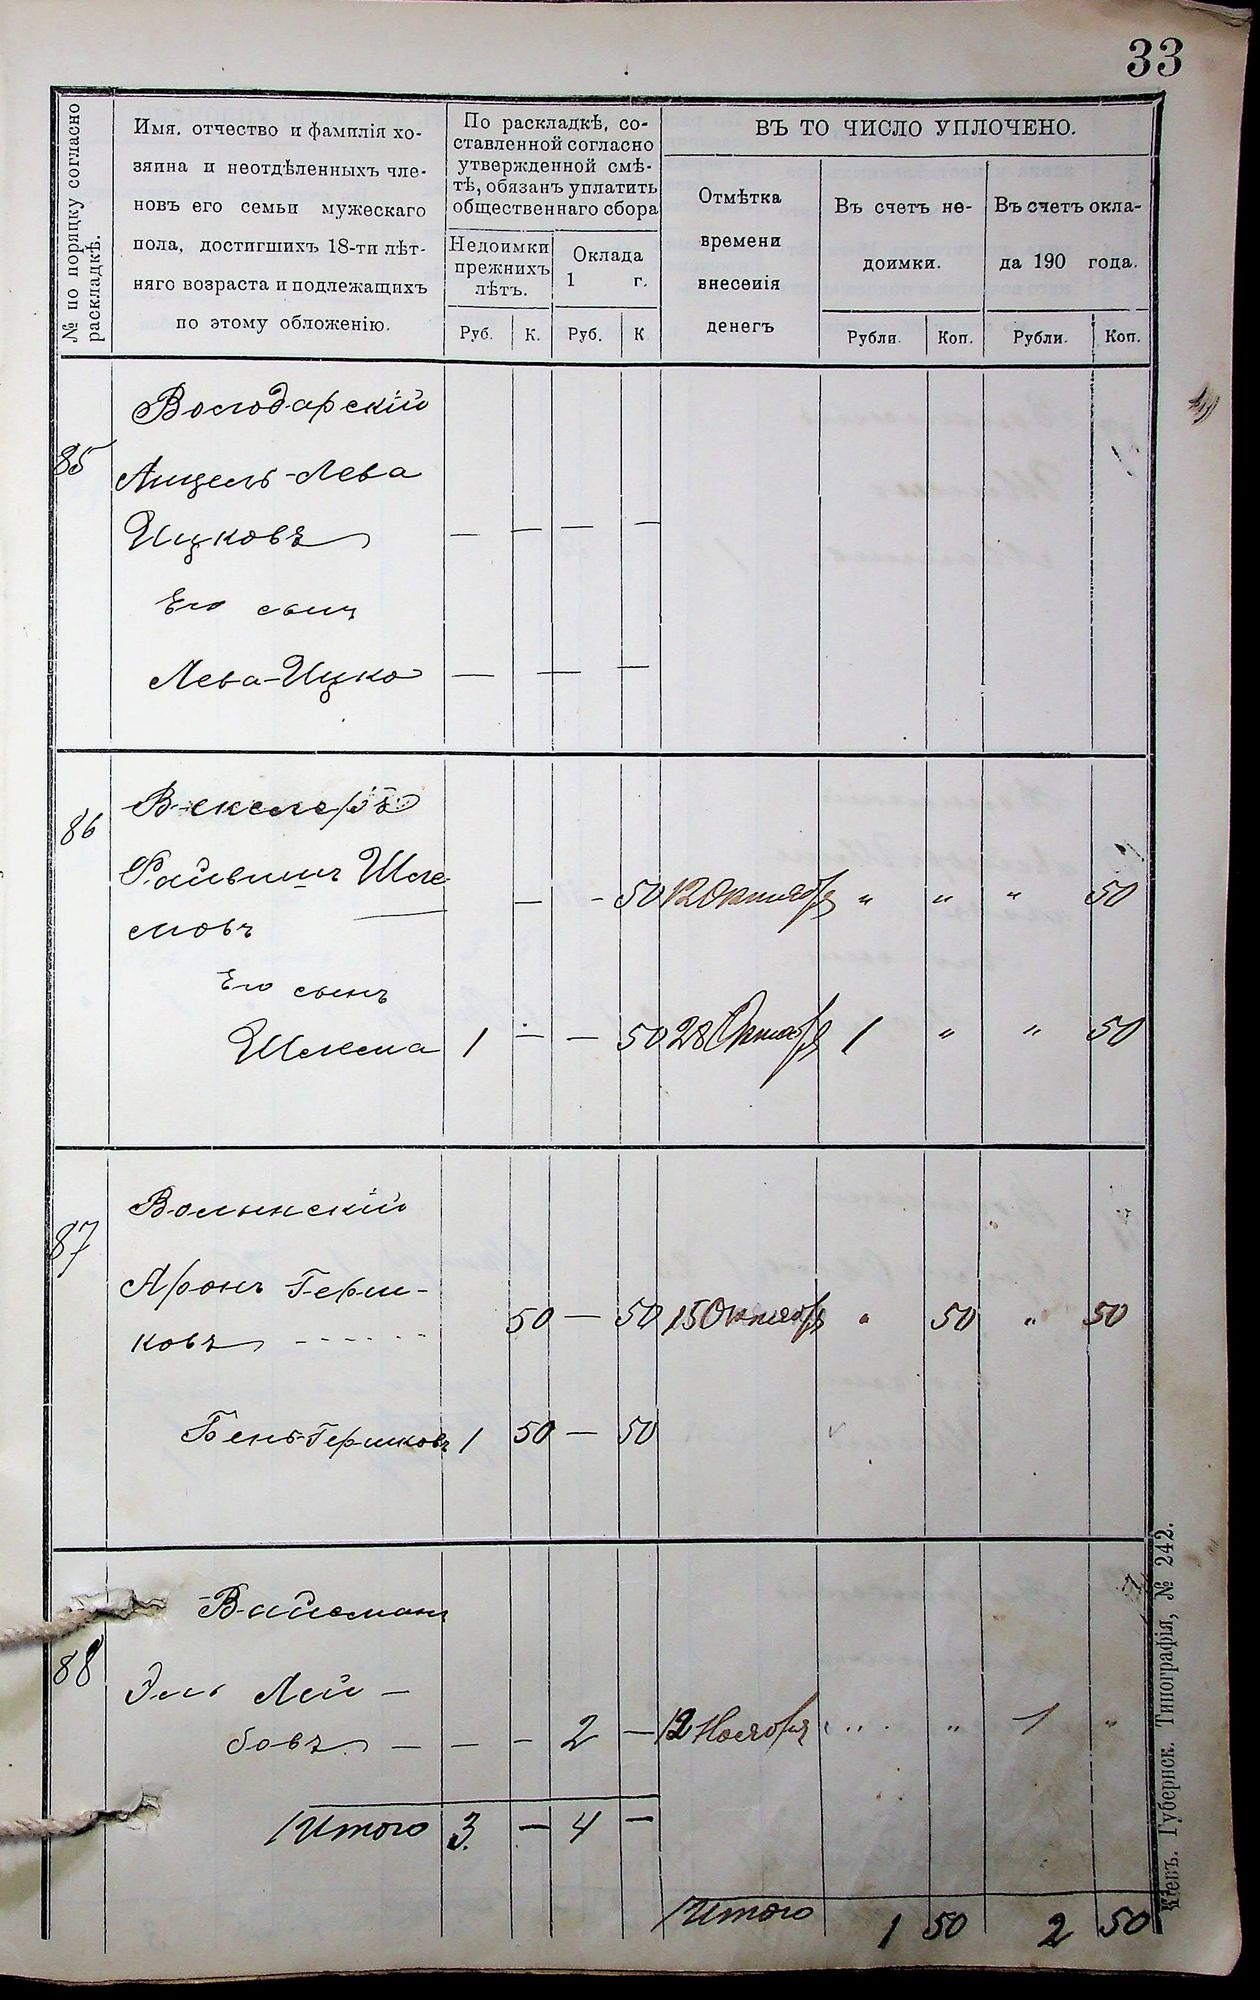 33
№ по порядку согласно раскладкѣ.
Имя, отчество и фамилія хо-
зяина и неотдѣленныхъ чле-
новъ его семьи мужескаго
пола, достигшихъ 18-ти лѣт-
няго возраста и подлежащихъ
по этому обложенію.
По раскладкѣ, со-
ставленной согласно
утвержденной смѣ-
тѣ, обязанъ уплатить
общественнаго сбора
Недоимки
прежнихъ
лѣтъ.
Оклада
1 г.
Руб. К. Руб. К
ВЪ ТО ЧИСЛО УПЛОЧЕНО.
Отмѣтка
времени
внесенія
денегъ
Въ счетъ не-
доимки.
Въ счетъ окла-
да 190 года.
Рубли. Коп. Рубли. Коп.
Володарскій
85 Анцель-Лева
Ицковъ — — — —
Его сынъ
Лева-Ицко — — —
Векслеръ
86
Файвишъ Шле-
мовъ — - 50 12 Октября " " " 50
Его сынъ
Шлема 1 - — 50 28 Октября 1 " " 50
Волынскій
87
Аронъ Герш-
ковъ 50 — 50 15 Октября " 50 " 50
Бень-Гершковъ 1 50 — 50
Вайсманъ
88
Эль Лей-
бовъ — — - 2 — 12 Ноября " " 1 "
Итого 3. — 4 —
Итого 1 50 2 50
Кіевъ. Губернск. Типографія, № 242.